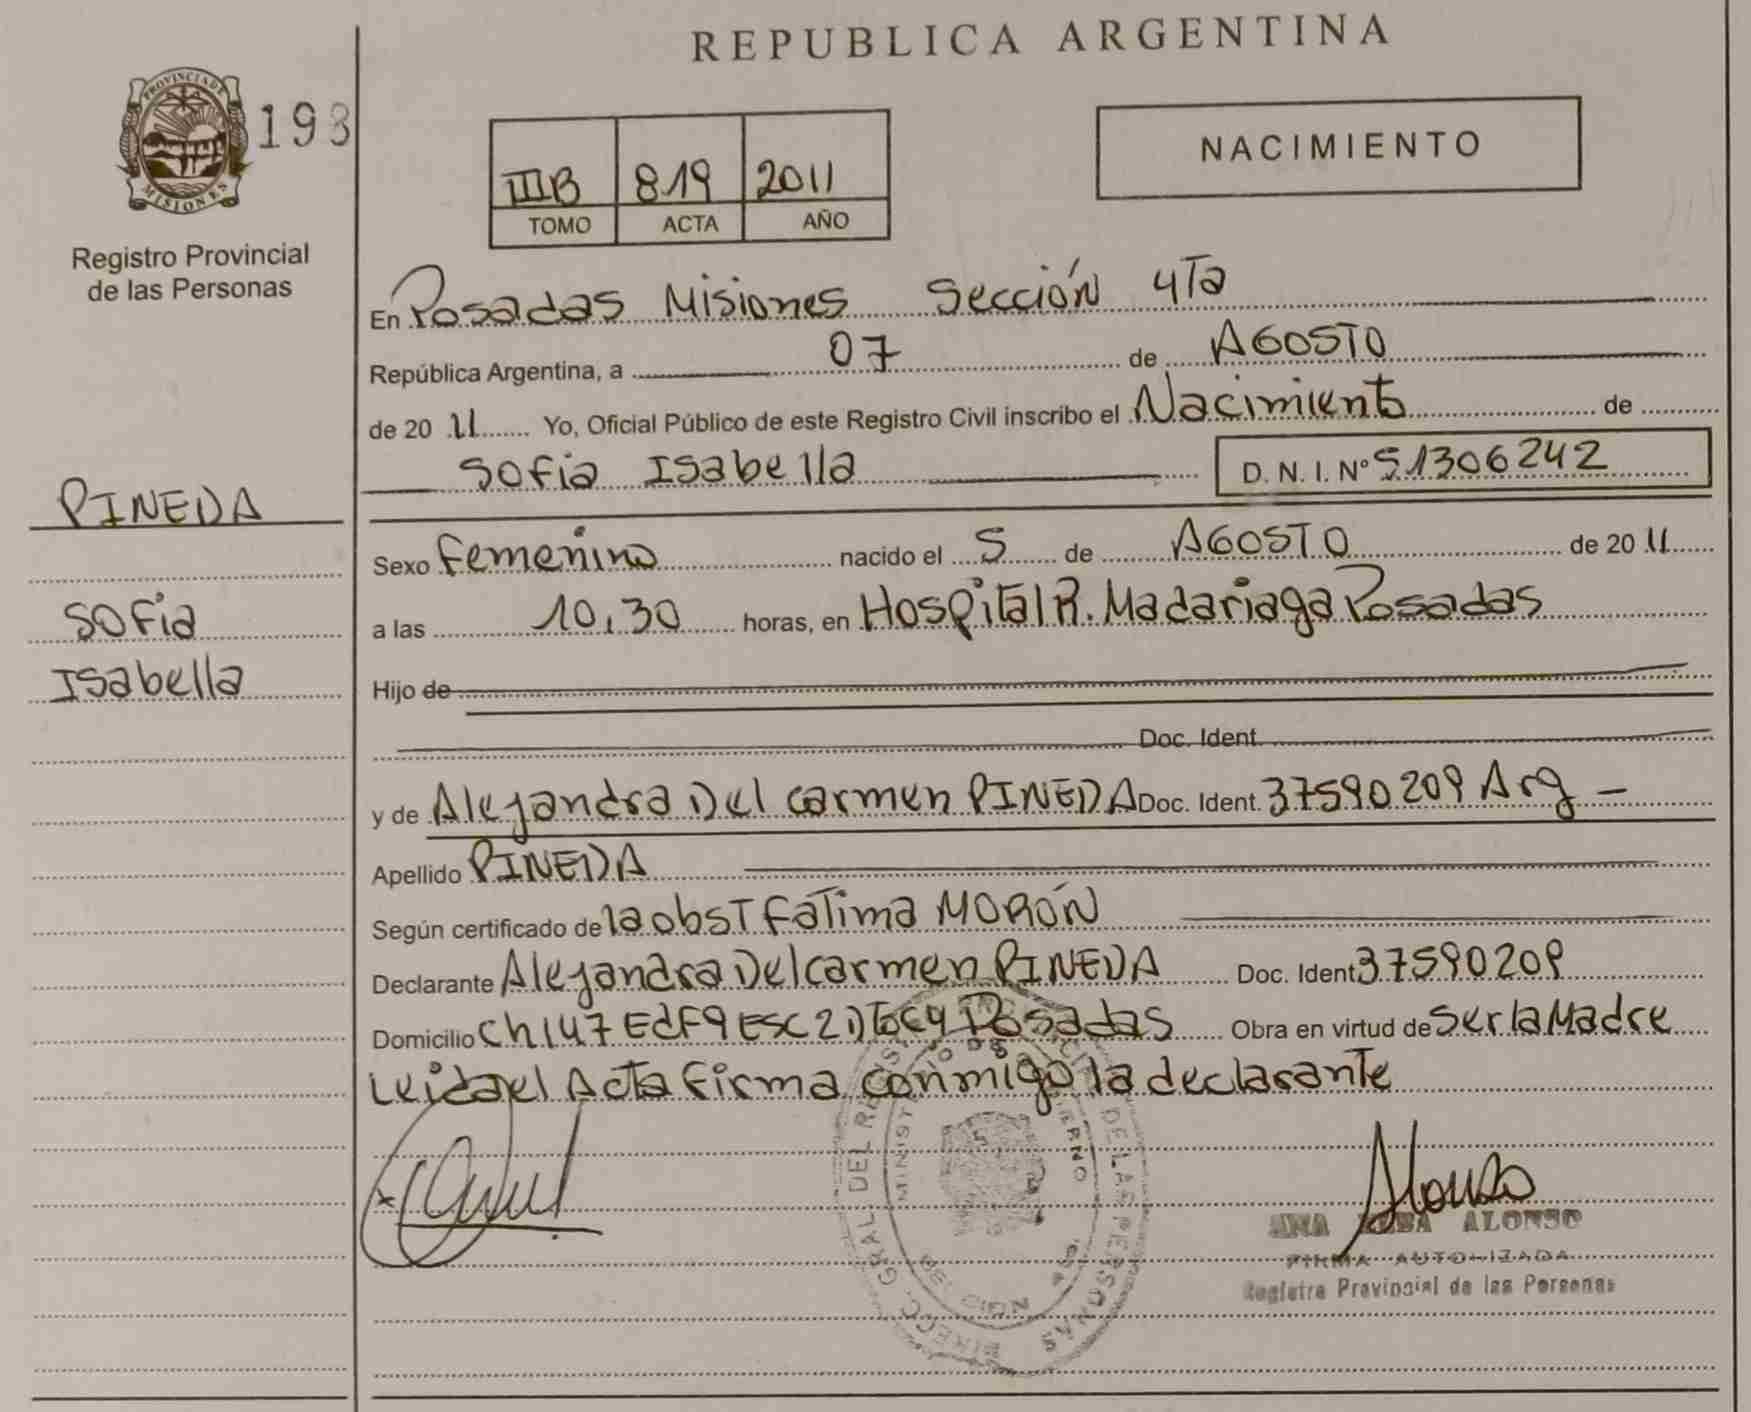 REPUBLICA ARGENTINA
PROVINCIA DE
MISIONES
193
Registro Provincial
de las Personas
IIIB 819 2011
TOMO ACTA AÑO
NACIMIENTO
En Posadas Misiones Sección 4Ta
República Argentina, a 07 de AGOSTO
de 20 11 Yo, Oficial Público de este Registro Civil inscribo el Nacimiento de
Sofia Isabella D. N. I. Nº 51306242
PINEDA
Sofia
Isabella
Sexo Femenino nacido el 5 de AGOSTO de 20 11
a las 10,30 horas, en Hospital R. Madariaga Posadas
Hijo de
Doc. Ident.
y de Alejandra Del Carmen PINEDA Doc. Ident. 37590209 Arg -
Apellido PINEDA
Según certificado de la obsT Fatima MORÓN
Declarante Alejandra Del Carmen PINEDA Doc. Ident 37590209
Domicilio Ch147 EdF9 ESC 2 DToC4 Posadas Obra en virtud de Ser la Madre
Leida el Acta Firma conmigo la declarante
DIRECC. GRAL. DEL DE LAS PERSONAS
Alonso
ANA ALONSO
FIRMA AUTORIZADA
Registro Provincial de las Personas